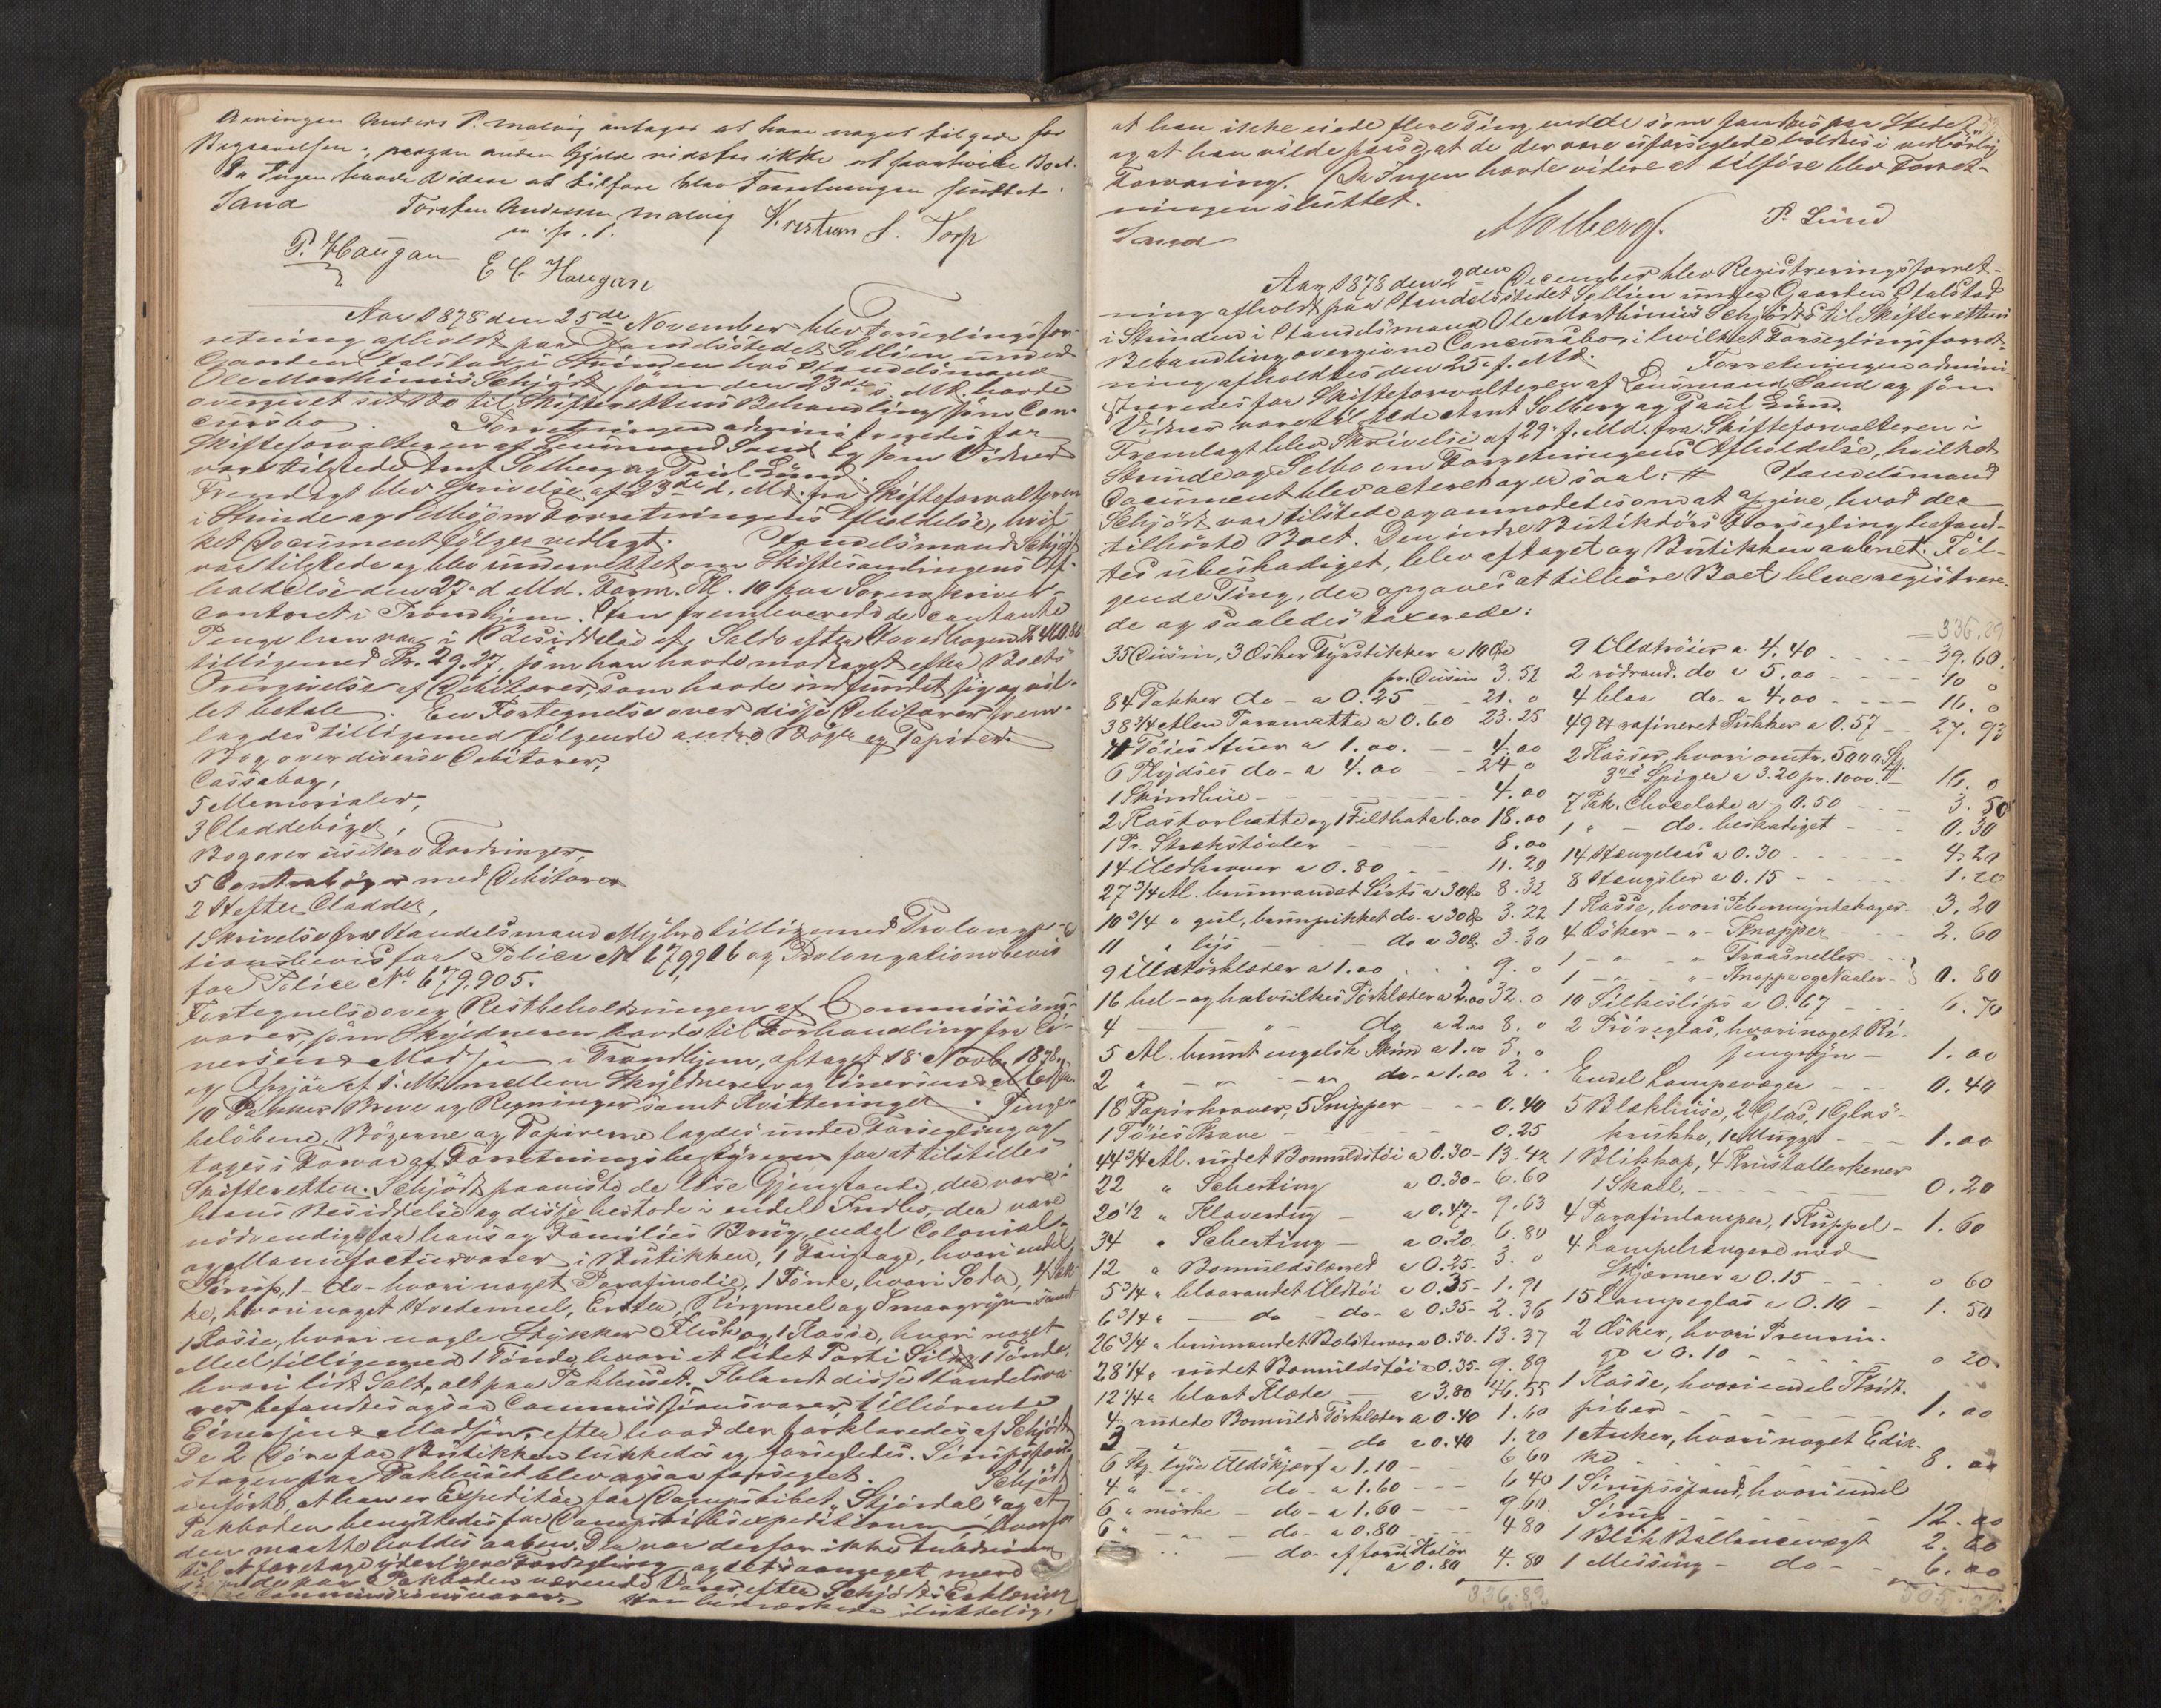 Arvingen Anders P. Malvig antages at have noget tilgode for
Begravelsen; nogen anden Gjæld vidstes ikke at paahvile Boet.
Da Ingen havde Videre at tilføre blev Forretningen sluttet.
Sand Torsten Andersen Malvig Kristian S. Torp
m. f. P.
P. Haugan E C. Haugan
Aar 1878 den 25de November blev Forseglingsfor-
retning afholdt paa Handelsstedet Sollien under
Gaarden Stalstad i Strinden hos Handelsmand
Ole Marthinus Schjødt, som den 23de s. Md. havde
overgivet sit Bo til Skifterettens Behandling som Con-
cursbo. Forretningen administreredes for
Skifteforvalteren af Lensmand Sand og som Vidner
vare tilstede Arnt Solberg og Paul Lund.
Fremlagt blev Skrivelse af 23de d. Md. fra Skifteforvalteren
i Strinde og Selbu om Forretningens Afholdelse, hvil-
ket Document følger vedlagt. Handelsmand Schjødt
var tilstede og blev underrettet om Skiftesamlingens Af-
holdelse den 27. d Md. Form. Kl. 10 paa Sorenskriver-
contoret i Trondhjem. Han fremleverede de contante
Penge han var i Besiddelse af, Saldo efter Hovedbogen Kr. 460.86
tilligemed Kr. 29.27, som han havde modtaget efter Boets
Overgivelse af Debitorer, som havde indfundet sig og vil-
let betale. En Fortegnelse over disse Debitorer frem-
lagdes tilligemed følgende andre Bøger og Papirer:
Bog over diverse Debitorer,
Cassabog,
5 Memorialer,
3 Claddebøger,
Bog over usikre Fordringer,
5 Contrabøger med Debitorer
2 Hefter Cladder,
1 Skrivelse fra Handelsmand Myhre tilligemed Prolonga-
tionsbevis for Police No 679,906 og Prolongationsbevis
for Police No. 679,905.
Fortegnelse over Restbeholdningen af Commissions-
varer, som Skyldneren havde til Forhandling fra Ei-
nersen & Madsen i Trondhjem, optaget 18 Novb. 1878,
og Opgjør af s. Md. mellem Skyldneren og Einersen & Madsen.
10 Pakker Breve og Regninger samt Kvitteringer. Penge-
beløbene, Bøgerne og Papirerne lagdes under Forsegling og
toges i Forvar af Forretningsbestyreren for at tilstilles
Skifteretten. Schjødt paaviste de løse Gjenstande, der vare i
hans Besiddelse og disse bestode i endel Indbo, der vare
nødvendige for hans og Families Brug, endel Colonial-
og Manufacturvarer i Butikken, 1 Fustage, hvori endel
Sirup, 1 - do - hvori noget Parafinolie, 1 Tønde, hvori Soda, 4 Sæk-
ke, hvori noget Hvedemeel, Erter, Rugmeel og Smaagryn samt
1 Kasse, hvori nogle Stykker Flesk og 1 Kasse, hvori noget
Meel tilligemed 1 Tønde, hvori et lidet Parti Sild og 1 Tønde,
hvori lidt Salt, alt paa Pakhuset. Iblandt disse Handelsva-
rer befandtes ogsaa Commissionsvarer tilhørende
Einersen & Madsen, efter hvad der forklaredes af Schjødt.
De 2 Døre for Butikken lukkedes og forsegledes. Sirupsfu-
stagen paa Pakhuset blev ogsaa forseglet. Schjødt
anførte, at han er Expeditør for Dampskibet "Stjørdal" og at
Pakboden benyttedes for Dampskibsexpeditionen, hvorfor
den maatte holdes aaben. Der var derfor ikke Anledning
til at foretage yderligere Forsegling, og det saameget mere
paa Pakboden værende Varer, efter Schjødts Erklæring
Commissionsvarer. Han bemærkede sluttelig,
at han ikke eiede flere Ting end de som fandtes paa Stedet
og at han vilde passe, at de der vare uforseglede holdtes i vedbørlig
Forvaring. Da Ingen havde videre at tilføre blev Forret-
ningen sluttet.
Sand ASolberg. P. Lund
Aar 1878 den 2den December blev Registreringsforret-
ning afholdt paa Handelsstedet Sollien under Gaarden Stalstad
i Strinden i Handelsmand Ole Marthinus Schjødts til Skifterettens
Behandling overgivne Concursbo, i hvilket Forseglingsforret-
ning afholdtes den 25. f. Md. Forretningen admini-
streredes for Skifteforvalteren af Lensmand Sand og som
Vidner vare tilstede Arnt Solberg og Paul Lund.
Fremlagt blev Skrivelse af 29. f. Md. fra Skifteforvalteren i
Strinde og Selbo om Forretningens Afholdelse, hvilket
Document blev acteret og er saal: # Handelsmand
Schjødt var tilstede og anmodedes om at opgive, hvad der
tilhørte Boet. Den indre Butikdørs Forsegling befand-
tes ubeskadiget, blev aftaget og Butikken aabnet. Føl-
gende Ting, der opgaves at tilhøre Boet bleve registrere-
de og saaledes taxerede:
336.89
35 Dusin, 3 Æsker Fyrstikker a 10 Øre
pr. Dusin 3.52
84 Pakker do - a 0.25 - 21. "
38 3/4 Alen Paramatta a 0.60 23.25
4 Tøies Huer a 1.00. - - 4.00
6 Plødses do - a 4.00 - - 24 "
1 Skindhue - - - 4.00
2 Kastorhatte og 1 Filthat a 6.00 18.00
1 Pr. Strækstøvler - - - 8.00
14 Uldkraver a 0.80 - - 11.20
27 3/4 Al. brunrandet Sirts a 30 Øre 8.32
10 3/4 " gul, brunprikket do - a 30 Øre 3.22
11 " lys - - do a 30 Øre 3.30
9 Uldtørklæder a 1.00 . . . 9. "
16 hel- og halvsilkes Tørklæder a 2.00 32. "
4 " - do a 2.00 8. "
5 Al. brunt engelsk Skind a 1.00 5. "
2 " - - " - do - a 1.00 2. "
18 Papirkraver, 5 Snipper - - 0.40
1 Tøies Krave - - - 0.25
44 3/4 Al. rudet Bomuldstøi a 0.30 - 13.42
22 " Scherting a 0.30 - 6.60
20 1/2 " Klaverdug - a 0.47 - 9.63
34 " Scherting - a 0.20 6.80
12 " Bomuldslærred a 0.25 - 3. "
5 3/4 " blaarandet Uldtøi a 0.35 - 1.91
6 3/4 " - do - do - a 0.35 - 2.36
26 3/4 " brunrandet Bolstervar a 0.50 - 13.37
28 1/4 " rudet Bomuldstøi a 0.35 - 9.89
12 1/4 " blaat Klæde - a 3.80 46.55
4 rudede Bomulds Tørklæder a 0.40 1.60
3 do a 0.40 1.20
6 Stk. lyse Uldskjærf a 1.10 - 6 60
4 " - " - do - a 1.60 - - - 6 40
6 " mørke - do - a 1.60 - - - 9.60.
6 " - " - do - a 0.80 - - - 4 80
- do - af forsk. Kolør
a 0.80 4.80
336.89
9 Uldtrøier a 4.40 - - - - 39.60.
2 rødrand. do a 5.00 - - - 10 "
4 blaa do - a 4.00 - - - 16. "
49 ℔ rafineret Sukker a 0.57 - - 27.93
2 Kasser, hvori omtr. 5000 Stk.
3" Spiger a 3.20 pr. 1000. 16. "
7 Pak. Chocolade a 0.50 - - - 3.50
1 " - do. beskadiget - - 0.30
14 Hængelaas a 0.30 - - - 4.20
8 Hængsler a 0.15 - - - 1.20
1 Kasse, hvori Pebermyntekager - 3.20
4 Æsker - " - Knapper - - 2.60
1 - " - " - Traasneller - -
1 - " - " - Knappe og Naaler - } 0.80
10 Silkeslips a 0.67 - - 6.70
2 Prøveglas, hvori noget Ri-
sengryn - 1.00
Endel Lampevæger - - 0.40
5 Blækhuse, 2 Glas, 1 Glas-
krukke, 1 Mugge - - - 1.00
1 Blikkop, 4 Krustallerkener
1 Skaal, - - - 0.20
4 Parafinlamper, 1 Kuppel - 1.60
4 Lampehængere med
Skjærmer a 0.15 - - - " 60
15 Lampeglas a 0.10 - 1.50
2 Æsker, hvori
a 0.10 - - - " 20
1 Kasse, hvori endel Kridt-
piber - - - 1.00
1 Anker, hvori noget Edik-
ke - - - 8.00
1 Sirupsspand, hvori endel
Sirup - - - 12.00
1 Blik Ballancevægt 2.00
1 Messing - do - - 6.00